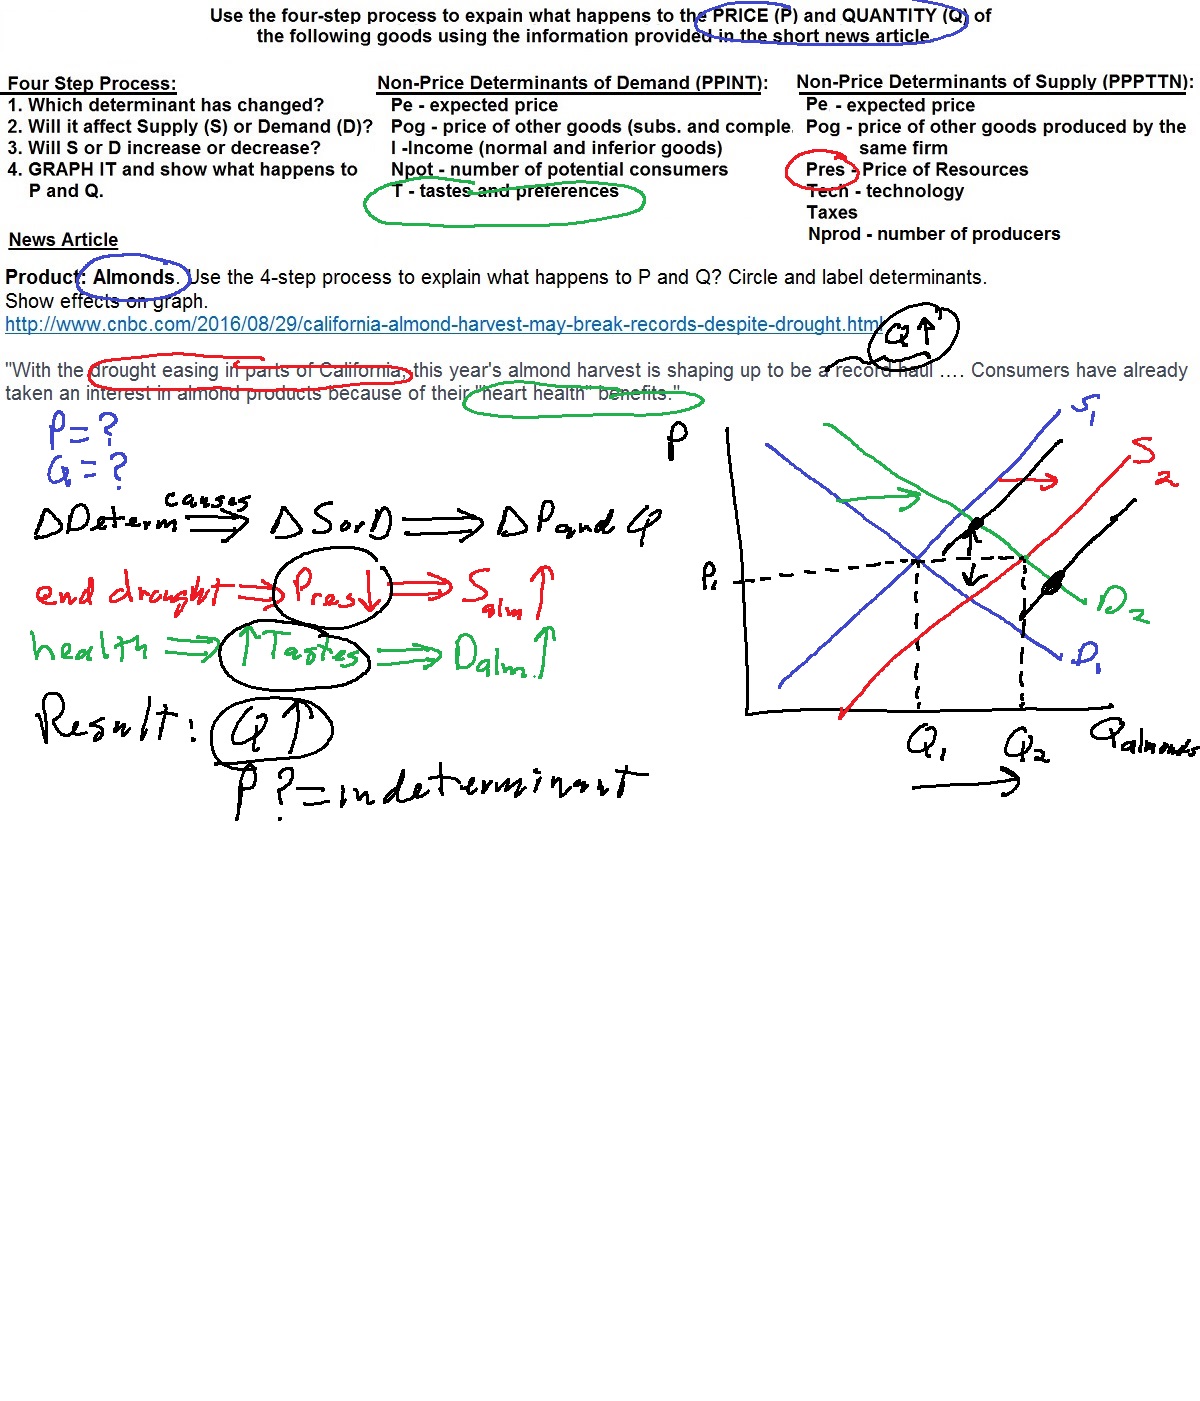 Use the four-step process to expain what happens to the PRICE (P) and QUANTITY (Q) of
the following goods using the information provided in the short news article.
Four Step Process:
1. Which determinant has changed?
2. Will it affect Supply (S) or Demand (D)?
3. Will S or D increase or decrease?
4. GRAPH IT and show what happens to
P and Q.
Non-Price Determinants of Demand (PPINT):
Pe - expected price
Pog - price of other goods (subs. and comple.
I -Income (normal and inferior goods)
Npot - number of potential consumers
T - tastes and preferences
Non-Price Determinants of Supply (PPPTTN):
Pe - expected price
Pog - price of other goods produced by the
same firm
Pres - Price of Resources
Tech - technology
Taxes
Nprod - number of producers
News Article
Product: Almonds. Use the 4-step process to explain what happens to P and Q? Circle and label determinants.
Show effects on graph.
http://www.cnbc.com/2016/08/29/california-almond-harvest-may-break-records-despite-drought.html
Q↑
"With the drought easing in parts of California, this year's almond harvest is shaping up to be a record haul .... Consumers have already
taken an interest in almond products because of their "heart health" benefits."
P = ?
Q = ?
causes
Δ Determ ⇒ Δ S or D ⇒ Δ P and Q
end drought ⇒ Pres↓ ⇒ Salm ↑
health ⇒ ↑Tastes ⇒ Dalm. ↑
Result: Q↑
P ? = indeterminant
P
S1
S2
P1
D2
D1
Q1
Q2
Q almonds